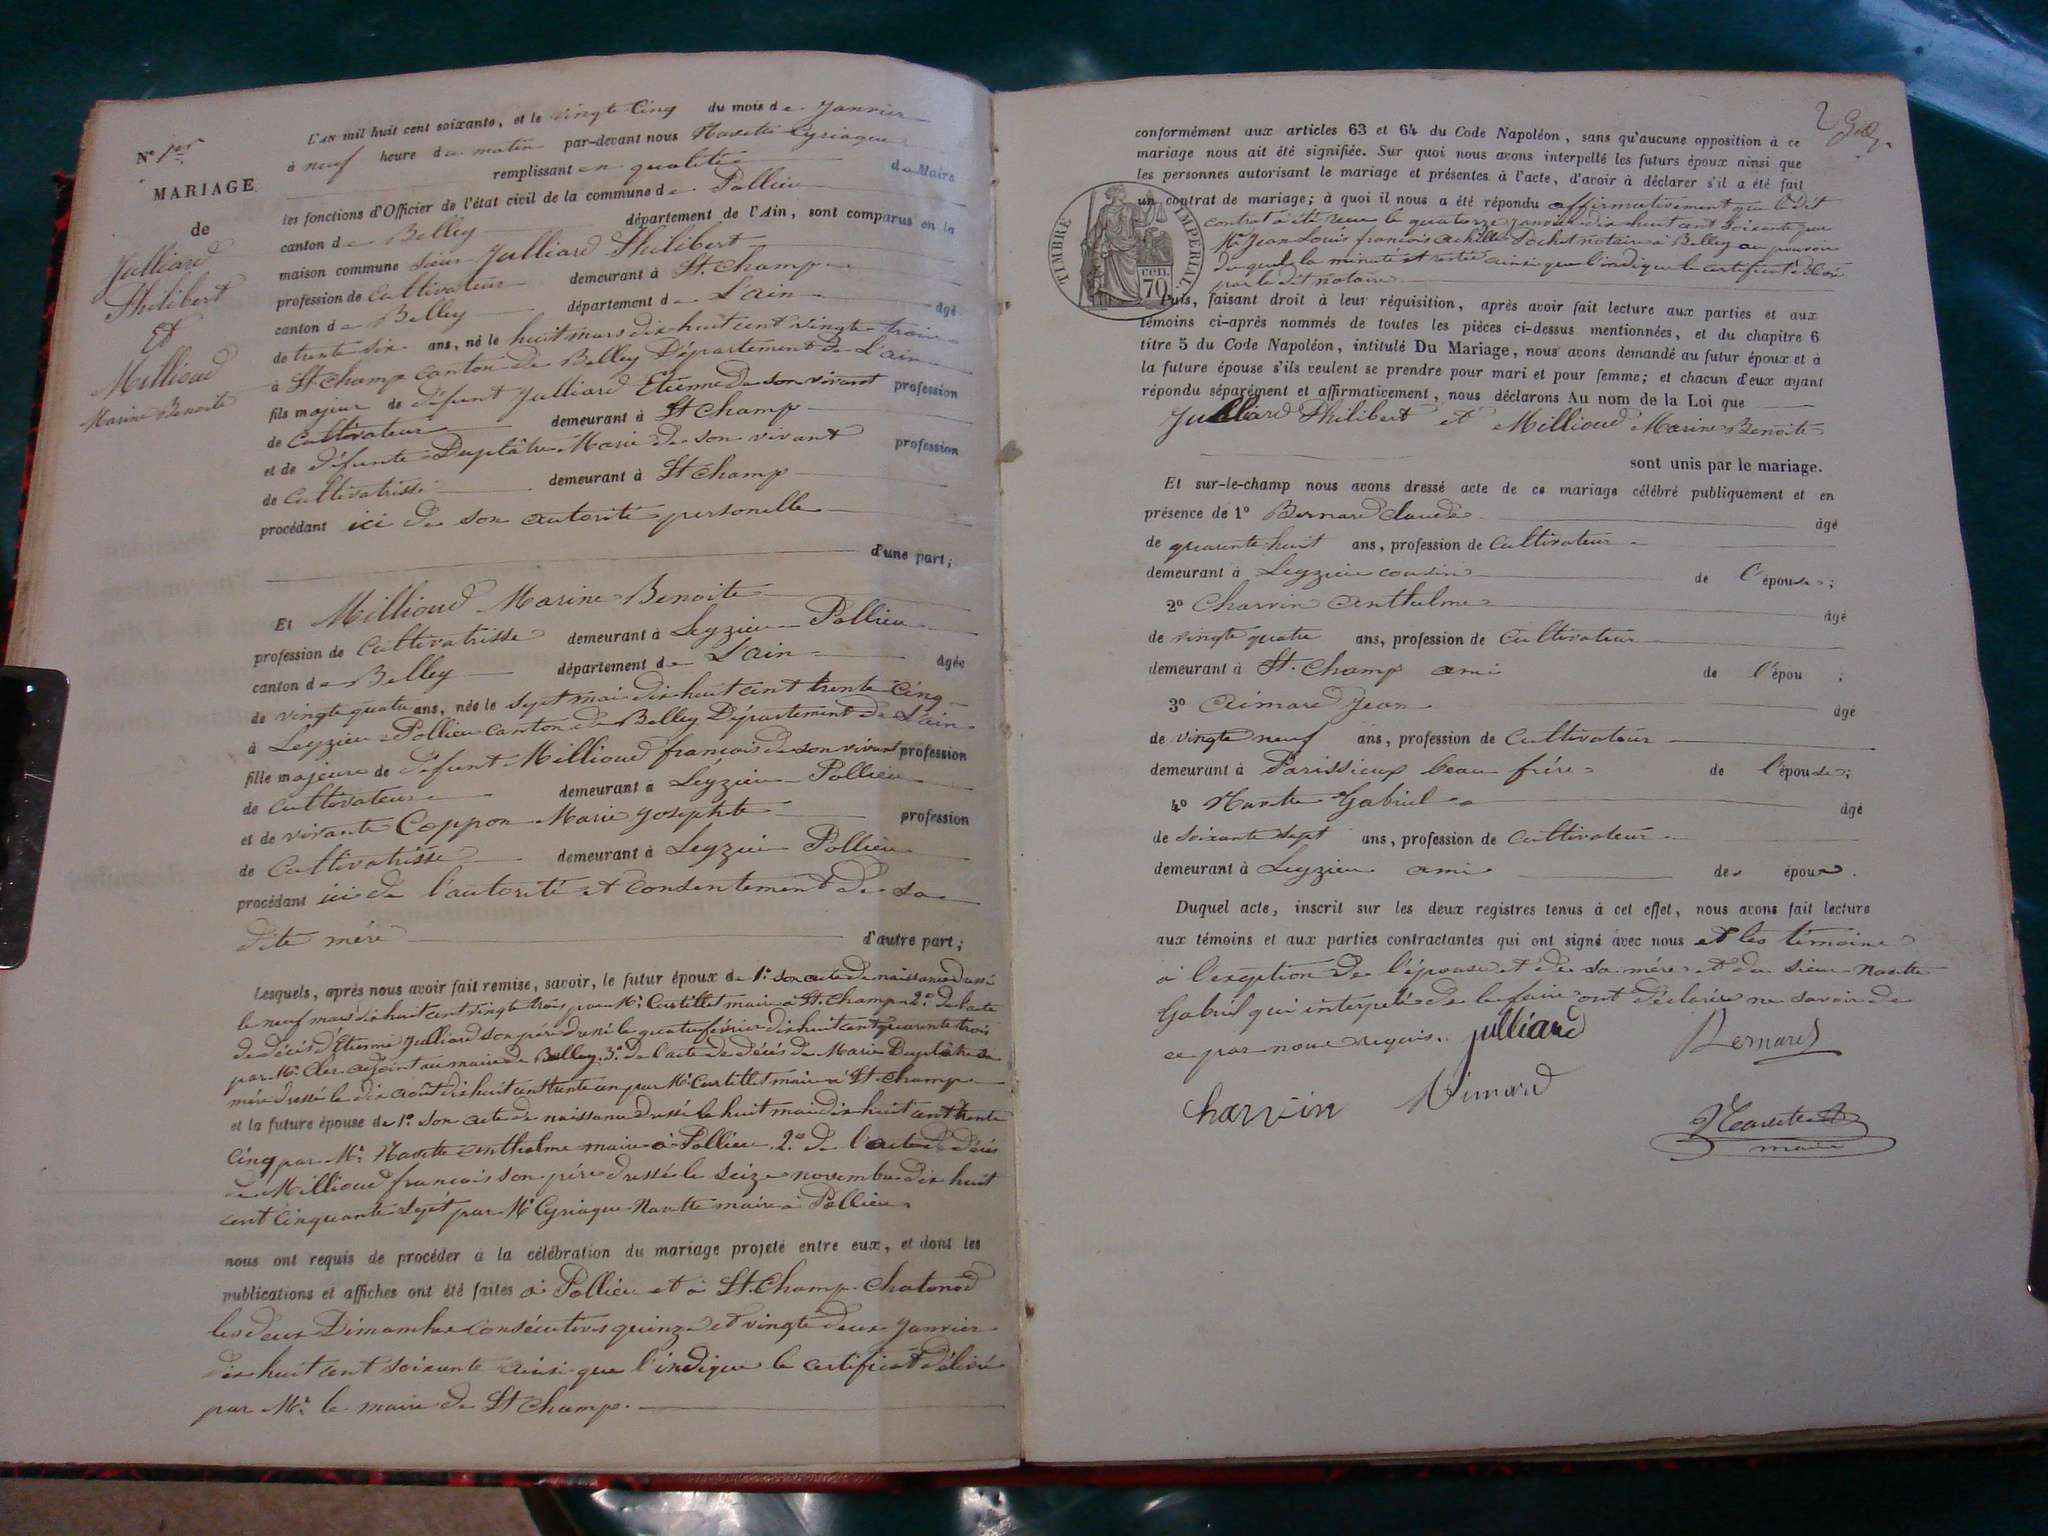 N° 1er
MARIAGE
de
Julliard
Philibert
Et
Millioud
Marine Benoite
L'AN mil huit cent soixante, et le vingt Cinq du mois de Janvier
à neuf heure du matin par-devant nous Navette Cyriaque
remplissant en qualitée de Maire
les fonctions d'Officier de l'état civil de la commune de Pollieu
canton de Belley département de l'Ain, sont comparus en la
maison commune sieur Julliard Philibert
profession de Cultivateur demeurant à St. Champ
canton de Belley département de L'ain âgé
de trente six ans, né le huit mars dix huit cent vingt trois
à St. Champ canton de Belley Département de L'ain
fils majeur de défunt Julliard Etienne De son vivant profession
de Cultivateur demeurant à St Champ
et de défunte Duplâtre Marie de son vivant profession
de Cultivatrisse demeurant à St Champ
procédant ici de son autorité personelle
d'une part;
Et Millioud Marine Benoite
profession de Cultivatrisse demeurant à Leyzieu Pollieu
canton de Belley département de L'ain âgée
de vingt quatre ans, née le sept mai dix huit cent trente cinq
à Leyzieu Pollieu canton de Belley Département de L'ain
fille majeure de défunt Millioud francois de son vivant profession
de Cultivateur demeurant à Leyzieu Pollieu
et de vivante Coppon Marie Josephte profession
de Cultivatrisse demeurant à Leyzieu Pollieu
procédant ici de l'autorité et consentement de sa
dite mére d'autre part;
Lesquels, après nous avoir fait remise, savoir, le futur époux de 1° son acte de naissance dressé
le neuf mars dix huit cent vingt trois par Mr. Castillet maire à St. Champ 2° de l'acte
de décés d'Etienne Julliard son pére dressé le quatre février dix huit cent quarente trois
par Mr. Cler adjoint au maire de Belley. 3° de l'acte de décés de Marie Duplâtre sa
mére dressé le dix août dix huit cent trente un par Mr. Castillet maire à St. Champ
et la future épouse de 1° son acte de naissance dressé le huit mai dix huit cent trente
Cinq par Mr. Navette anthelme maire à Pollieu. 2° de l'acte de décés
de Millioud francois son pére dressé le seize novembre dix huit
cent cinquante sept par Mr Cyriaque Navette maire à Pollieu
nous ont requis de procéder à la célébration du mariage projeté entre eux, et dont les
publications et affiches ont été faites à Pollieu et à St. Champ. Chatonod
les deux Dimanches consécutives quinze et vingt deux Janvier
dix huit cent soixante ainsi que l'indique le certificat délivré
par Mr. le maire de St Champ.
2
conformément aux articles 63 et 64 du Code Napoléon, sans qu'aucune opposition à ce
mariage nous ait été signifiée. Sur quoi nous avons interpellé les futurs époux ainsi que
les personnes autorisant le mariage et présentes à l'acte, d'avoir à déclarer s'il a été fait
un contrat de mariage; à quoi il nous a été répondu affirmativement que le dit
contrat a été recu le quatorze Janvier dix huit cent soixante par
Me Jean Louis francois achille Pochet notaire à Belley au pouvoir
duquel la minute est restée ainsi que l'indique le certificat délivré
par le dit notaire
TIMBRE IMPERIAL
70 cen.
Puis, faisant droit à leur réquisition, après avoir fait lecture aux parties et aux
témoins ci-après nommés de toutes les pièces ci-dessus mentionnées, et du chapitre 6
titre 5 du Code Napoléon, intitulé Du Mariage, nous avons demandé au futur époux et à
la future épouse s'ils veulent se prendre pour mari et pour femme; et chacun d'eux ayant
répondu séparément et affirmativement, nous déclarons Au nom de la Loi que
Julliard Philibert et Millioud Marine Benoite
sont unis par le mariage.
Et sur-le-champ nous avons dressé acte de ce mariage célébré publiquement et en
présence de 1° Bernard Claude âgé
de quarente huit ans, profession de Cultivateur
demeurant à Leyzieu cousin de l'épouse;
2° Charvin Anthelme âgé
de vingt quatre ans, profession de Cultivateur
demeurant à St. Champ ami de l'épou ;
3° Aimard Jean âgé
de vingt neuf ans, profession de Cultivateur
demeurant à Parissieux beau frére de l'épouse;
4° Navette Gabriel âgé
de soixante sept ans, profession de Cultivateur
demeurant à Leyzieu ami des époux.
Duquel acte, inscrit sur les deux registres tenus à cet effet, nous avons fait lecture
aux témoins et aux parties contractantes qui ont signé avec nous et les témoins
à l'exeption de l'épouse et de sa mére et du sieur Navette
Gabriel qui interpelé de le faire ont déclarée ne savoir de
ce par nous requis. Julliard Bernard
Charvin Aimard
Navette
maire